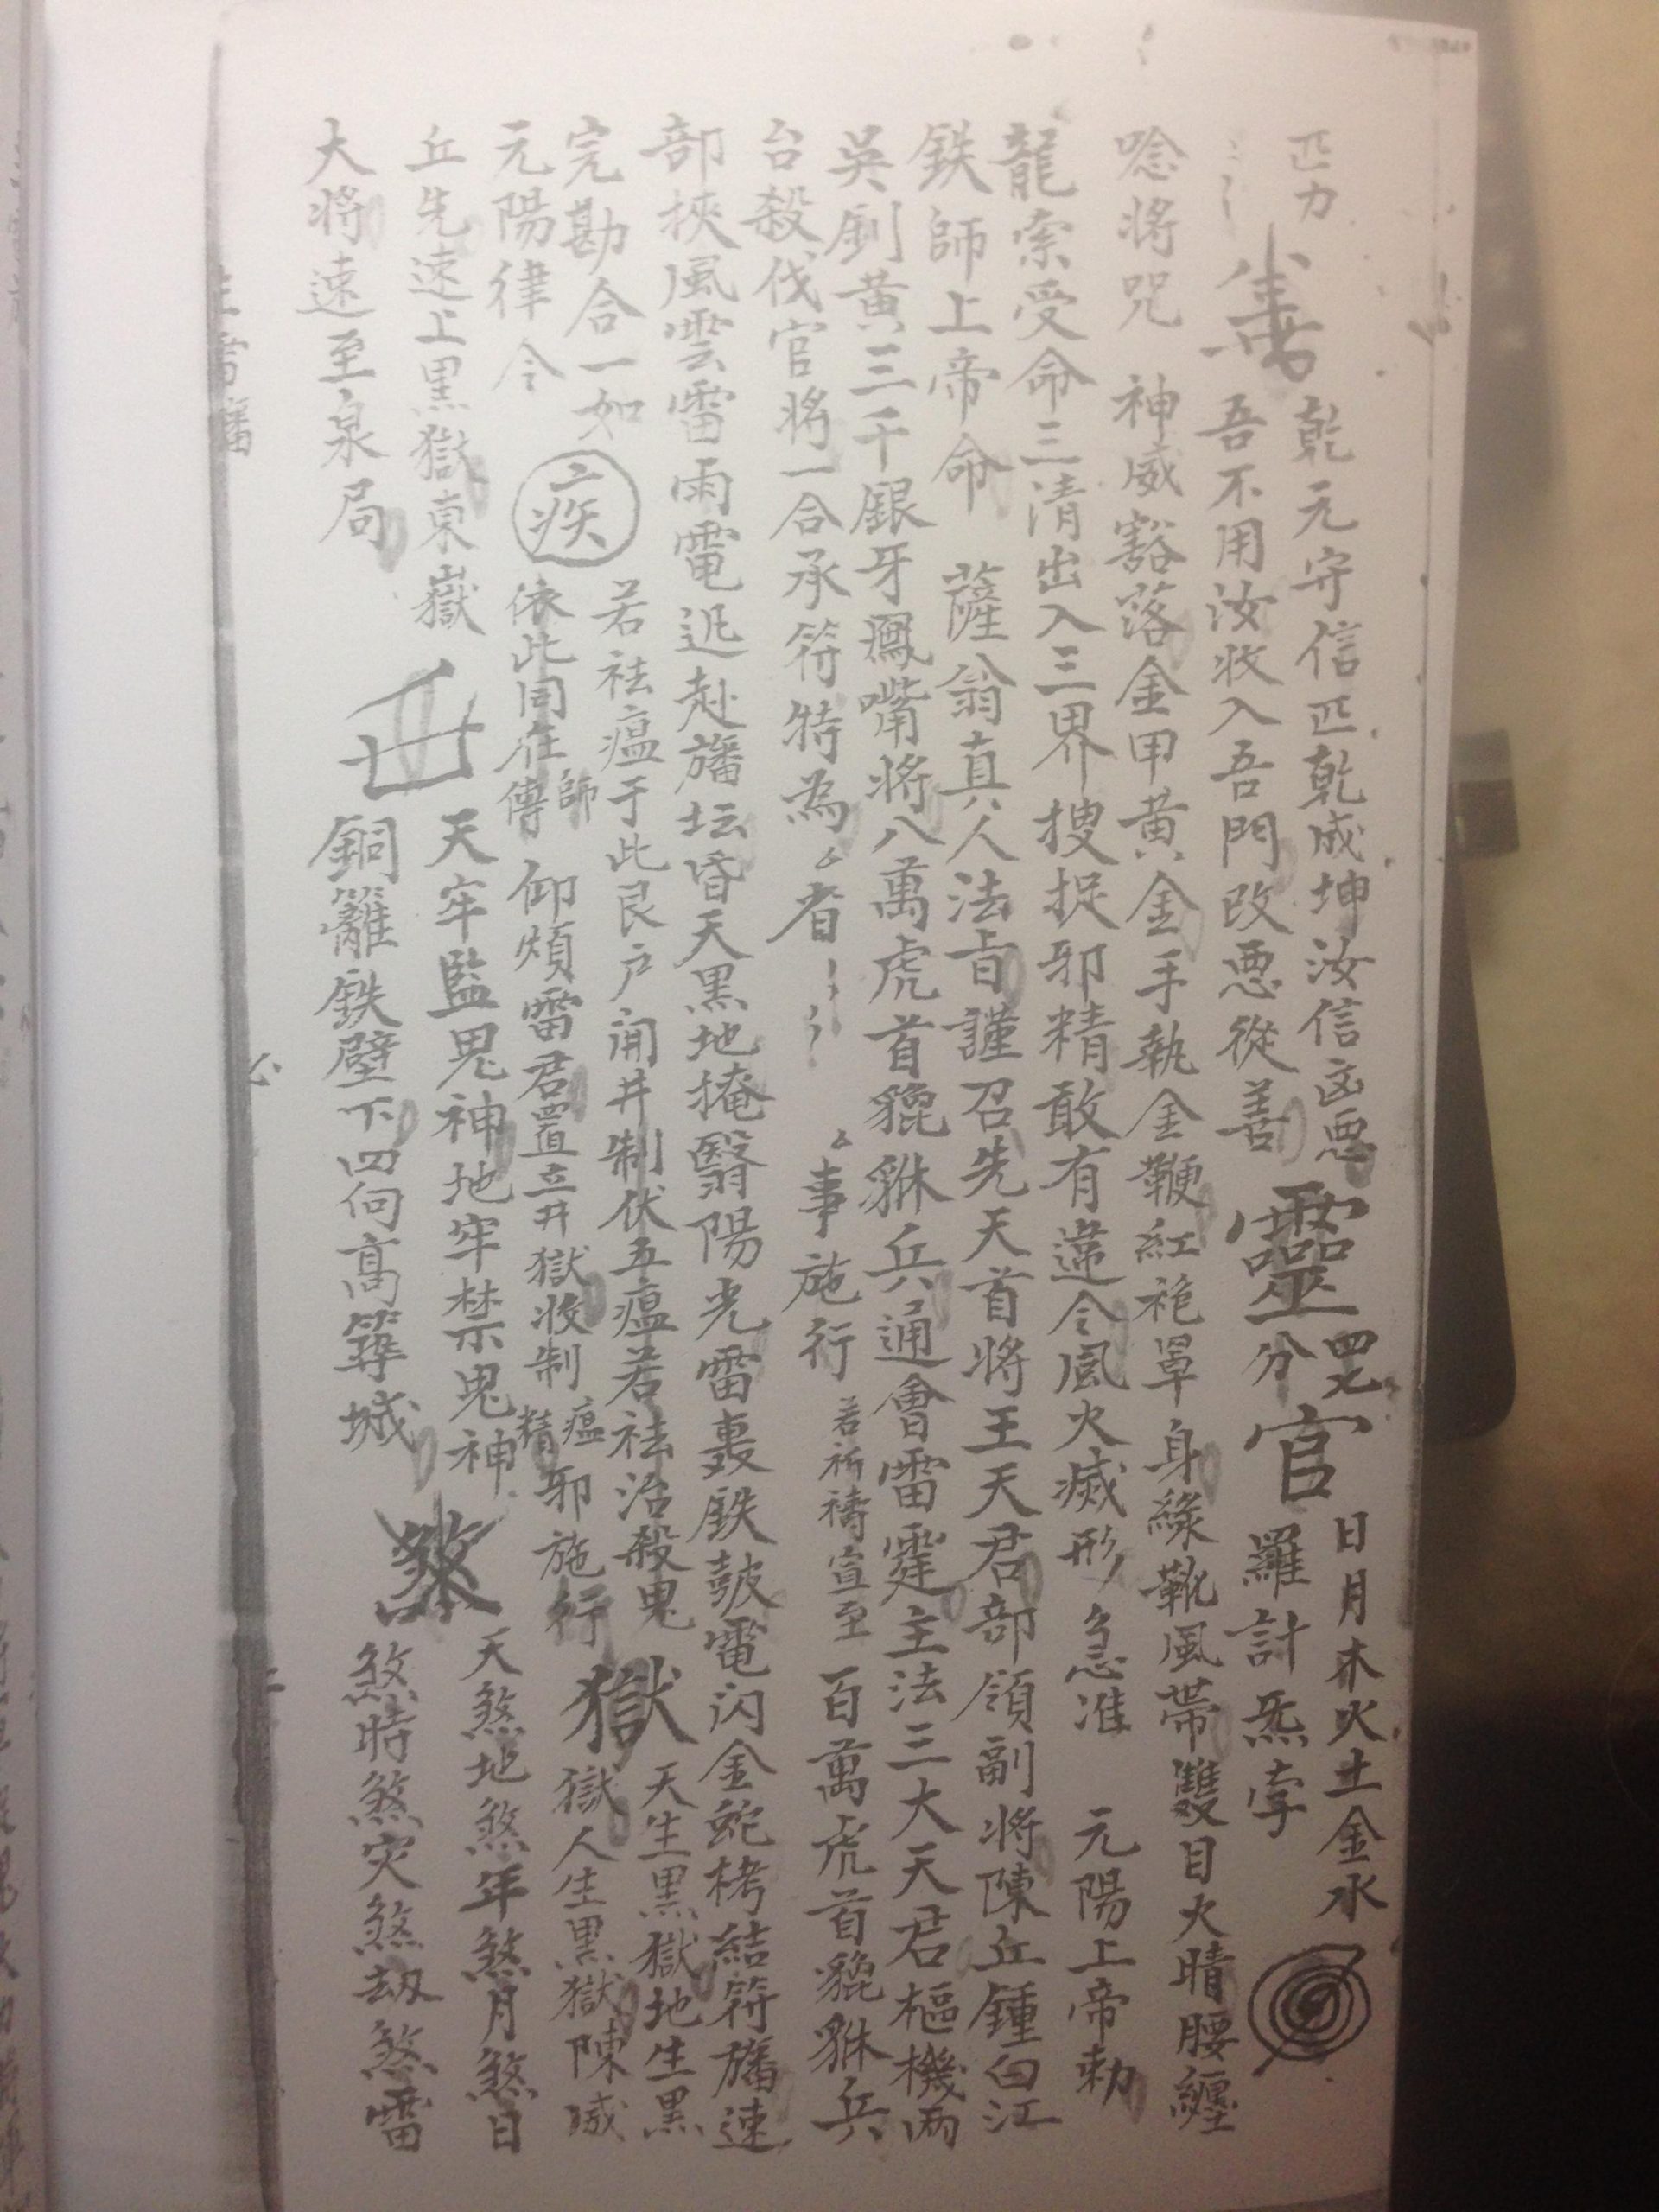 匹力 乾元守信匹乾成坤汝信凶恶 四七 日月木火土金水
善 吾不用汝收入吾門改恶從善 靈分官 羅計炁孛
唸將咒 神威豁落金甲黄金手執金鞭紅袍罩身綠靴風帶雙目火睛腰纏
龍索受命三清出入三界搜捉邪精敢有違令風火滅形 急准 元陽上帝勅
鉄師上帝命 薩翁真人法旨謹召先天首將王天君部領副將陳丘鍾白江
吳釗黄三千銀牙鳳嘴將八萬虎首貔貅兵通會雷霆主法三大天君樞機両
台殺伐官將一合承符特為 者 事施行 若祈禱宣至 百萬虎首貔貅兵
部挾風雲雷雨電迅赴旛坛昏天黑地掩翳陽光雷轟鉄鼓電闪金蛇栲結符旛速
完勘合一如 若祛瘟于此艮户闹井制伏五瘟若祛治殺鬼 天生黑獄地生黑
疾
元陽律令 依此同在師傳 仰煩雷君置立井獄收制瘟精邪施行 獄 獄人生黑獄陳威
丘先速上黑獄東嶽 天牢監鬼神地牢禁鬼神 天煞地煞年煞月煞日
大將速至泉局 銅籬鉄壁下四向高築城 煞時煞灾煞劫煞雷